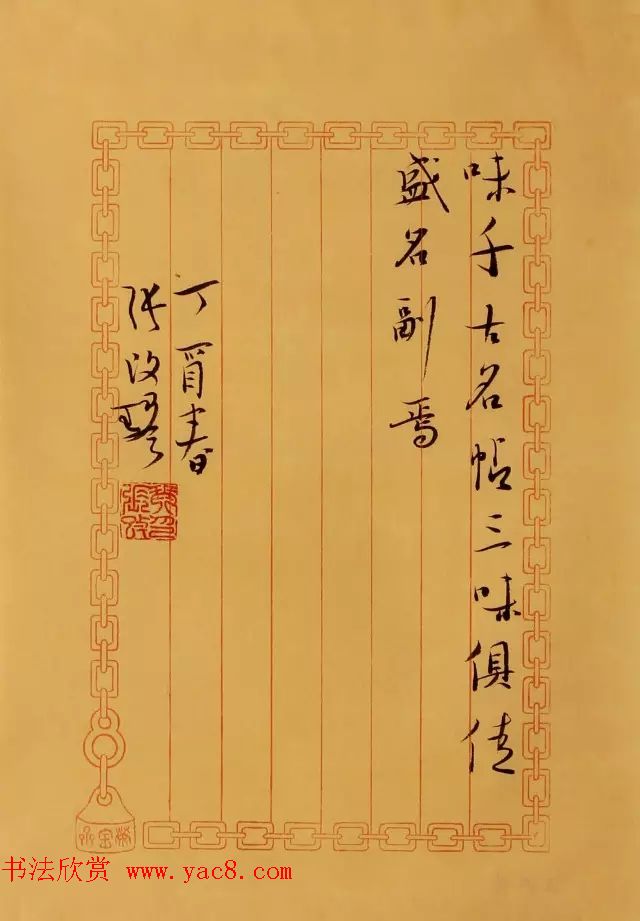 味千古名帖三味俱佳
盛名副焉
丁酉春
张改琴
书法欣赏 www.yac8.com